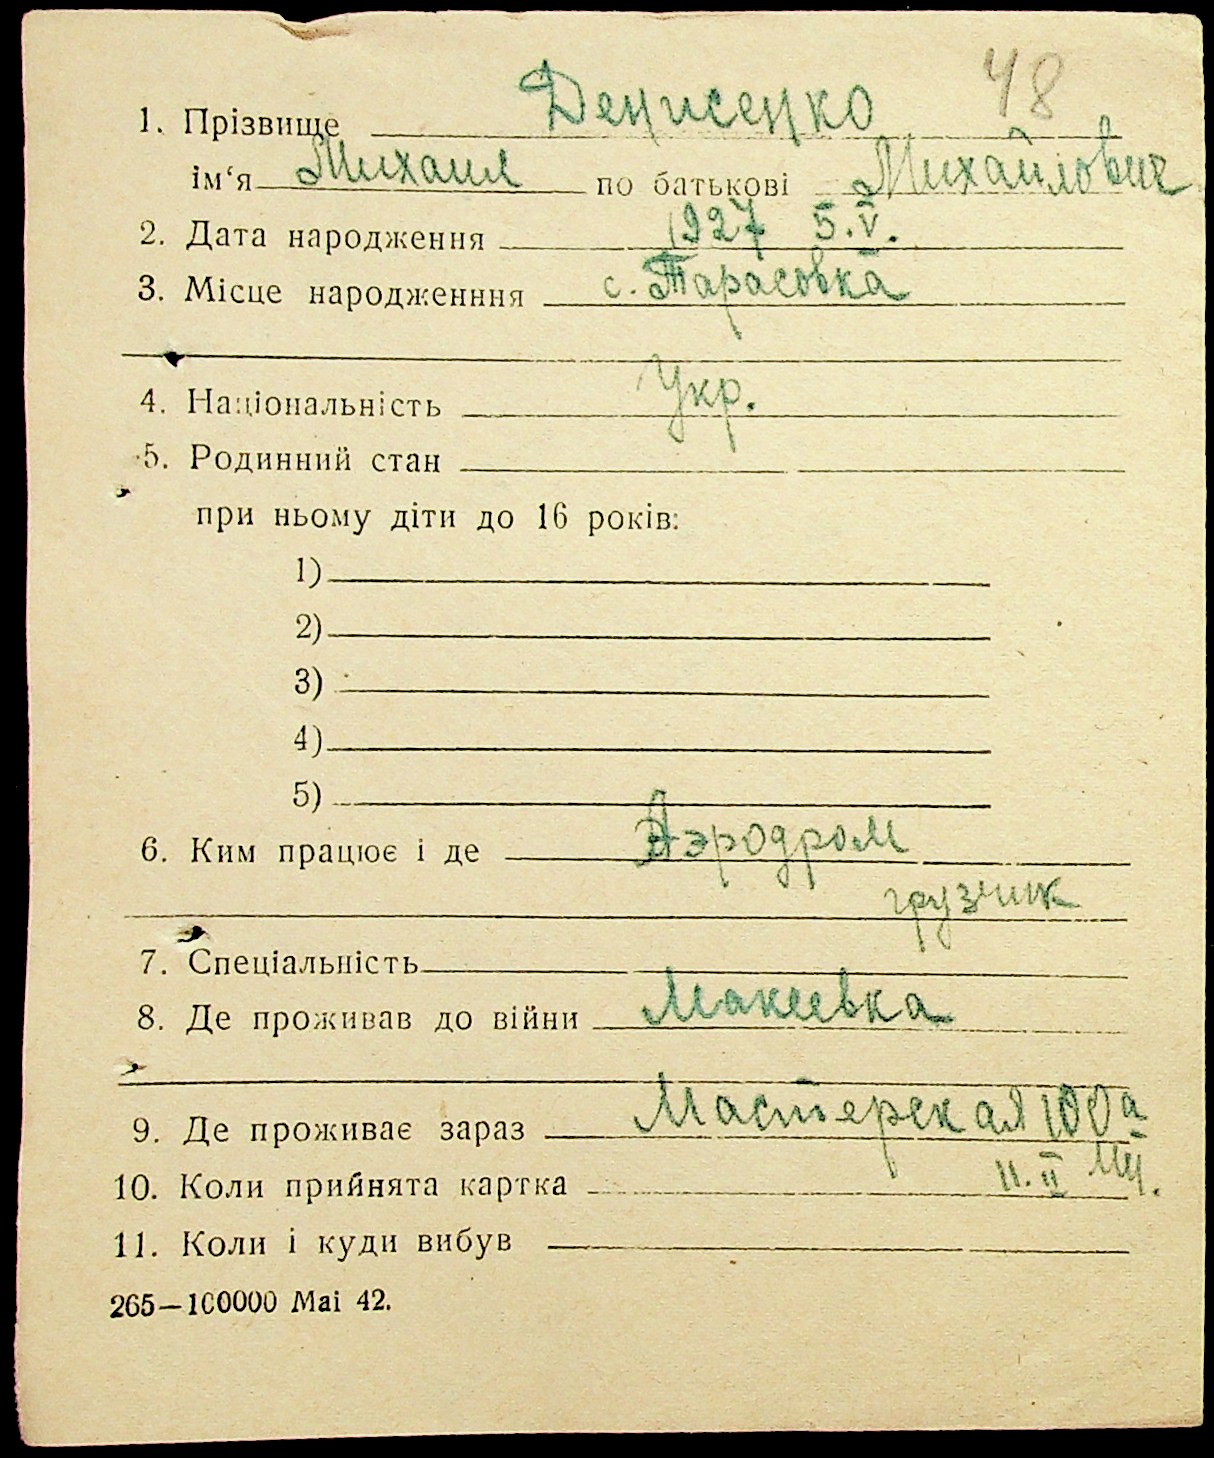 48
1. Прізвище Денисенко
ім‘я Михаил по батькові Михайлович
2. Дата народження 1927 5.V.
3. Місце народженння с. Тарасовка
4. Національність Укр.
5. Родинний стан
при ньому діти до 16 років:
1)
2)
3)
4)
5)
6. Ким працює і де Аэродром
грузчик
7. Спеціальність
8. Де проживав до війни Макеевка
9. Де проживає зараз Мастерская 100а
10. Коли прийнята картка 11.II
11. Коли і куди вибув
265—100000 Mai 42.